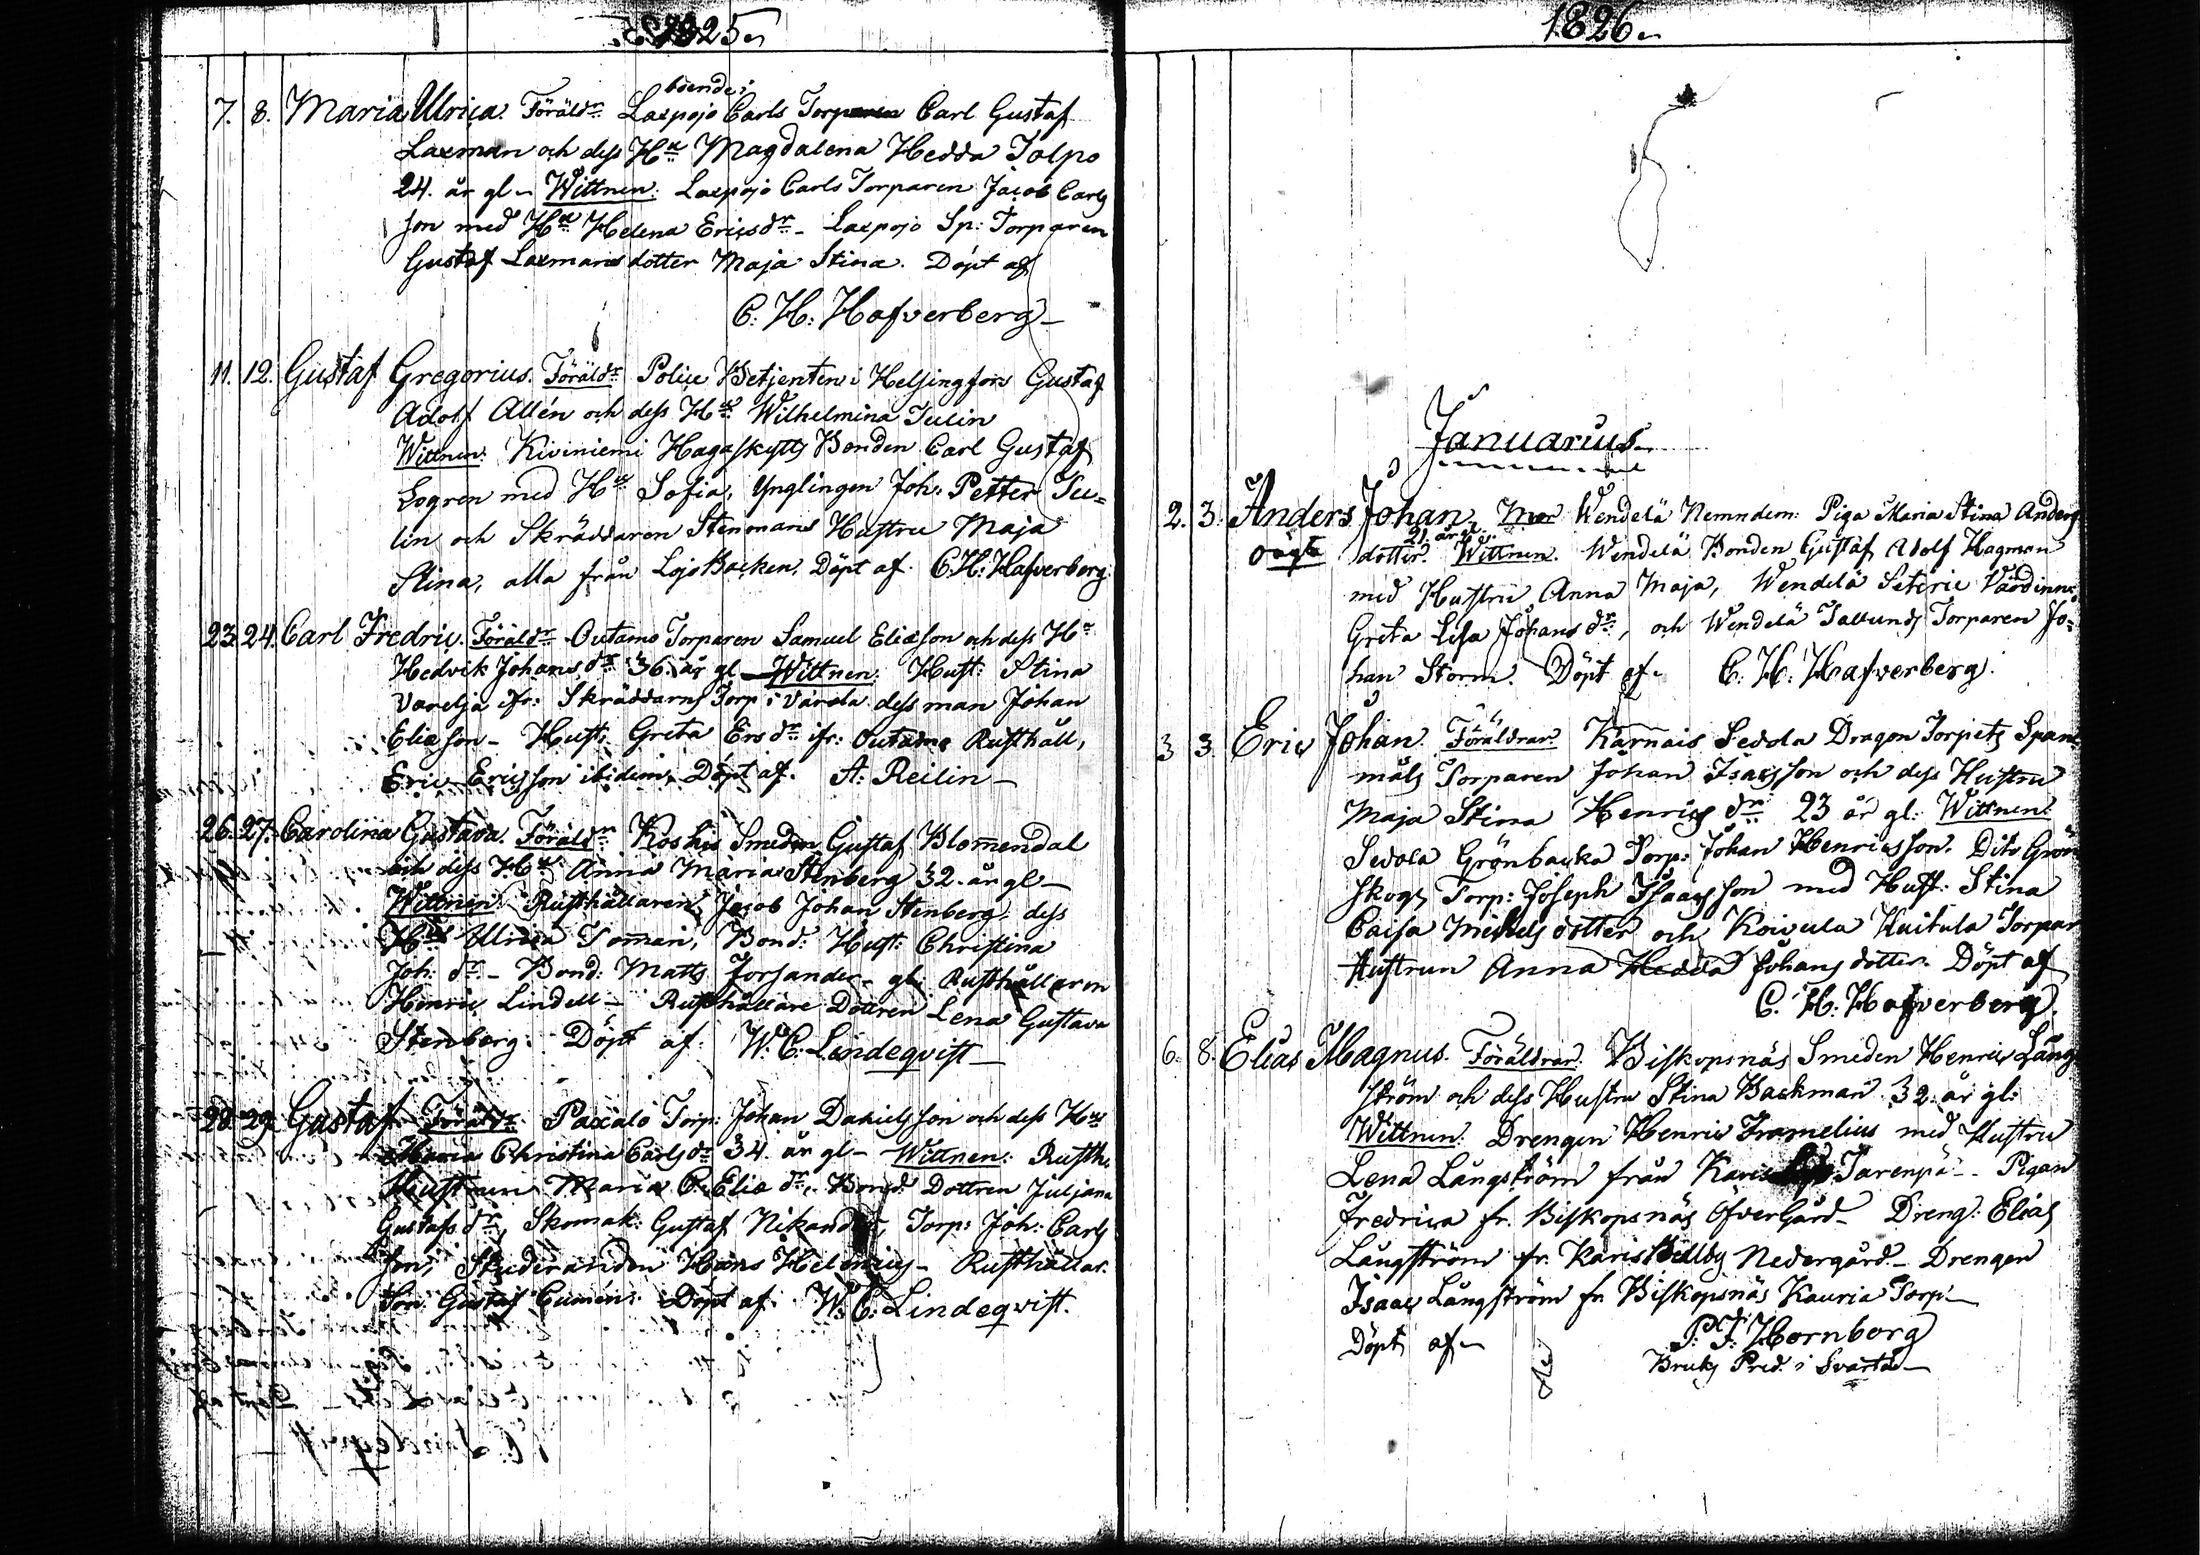 1825
boende i
7. 8. Maria Ulrica. Föräldr Laxpojo Carls Torparen Carl Gustaf
Laxman och dess Hu Magdalena Hedda Tolpo
24. år gl. Wittnen: Laxpojo Carls Torparen Jacob Carls
son med Hu Helena Ericsdr - Laxpojo Sp: Torparen
Gustaf Laxmans dotter Maja Stina. Döpt af
C: H: Hafverberg
11. 12. Gustaf Gregorius. Föräldr Police Betjenten i Helsingfors Gustaf
Adolf Allén och dess Hu Wilhelmina Julin
Wittnen: Kiviniemi Hagaskytts Bonden Carl Gustaf
Logren med Hu Sofia, Ynglingen Joh: Petter Ju=
lin och Skräddaren Stenmans Hustru Maja
Stina, alla från Lojo Backen. Döpt af C:H: Hafverberg
23. 24. Carl Fredric. Föräldr Outamo Torparen Samuel Eliæson och dess Hu
Hedvik Johans dr 36. år gl - Wittnen: Hust: Stina
Varelja ifr: Skräddarns Torp i Varola dess man Johan
Eliæson - Hust: Greta Ersdr ifr: Outamo Rusthåll,
Eric Ericsson ibidem, Döpt af. A: Reilin -
26. 27. Carolina Gustava. Föräldr Koskis Smeden Gustaf Blomendal
och dess Hu Anna Maria Stenberg 32. år gl -
Wittnen: Rusthållaren Jacob Johan Stenberg dess
Hu Ulrica Tomman, Bond: Hust: Christina
Joh: dr - Bond: Matts Forsander - gl. Rusthållaren
Henric Lindell - Rusthållare Dottren Lena Gustava
Stenberg. Döpt af: W: C: Lindeqvist
28. 29. Gustaf. Föräldr Paxalo Torp: Johan Danielsson och dess Hu
Maria Christina Carlsdr 34. år gl - Wittnen: Rusth:
Hustrun Maria C. Eliæ dr, Bond: Dottren Juljana
Gustafs dr, Skomak: Gustaf Nikander, Torp: Joh: Carls
son, Studeranden Hans Helenius - Rusthållar.
Son Gustaf Cumén. Döpt af W: C: Lindeqvist.
1826
Januarius
2. 3. Anders Johan, Mor Wendelä Nemndem: Piga Maria Stina Anders
21. år
Oägta dotter. Wittnen. Wendelä Bonden Gustaf Adolf Hagman
med Hustru Anna Maja, Wendelä Seterie Värdinna
Greta Lisa Johans dr, och Wendelä Tallunds Torparen Jo=
han Storm. Döpt af C: H: Hafverberg.
3 3. Eric Johan. Föräldrar. Karnais Sedola Dragon Torpets Span
måls Torparen Johan Isacsson och dess Hustru
Maja Stina Henrics dr 23 år gl: Wittnen:
Sedola Grönbacka Torp: Johan Henricsson. Dito Grön
skogs Torp: Joseph Isaacsson med Hust: Stina
Caisa Michels dotter och Koivula Kuitula Torpar
Hustrun Anna Hedda Johans dotter. Döpt af
C: H: Hafverberg.
6. 8. Elias Magnus. Föräldrar. Biskopsnäs Smeden Henric Lång
ström och dess Hustru Stina Backman 32. år gl:
Wittnen: Drengen Henric Framelius med Hustru
Lena Långström från Karis Tarenpä - Pigan
Fredrica fr. Biskopsnäs Öfvergård - Dreng: Elias
Långström fr. Karis Nedergård - Drengen
Isaac Långström fr. Biskopsnäs Kauria Torp
Döpt af P: F: Hornborg
Bruks Pred. i Svartå